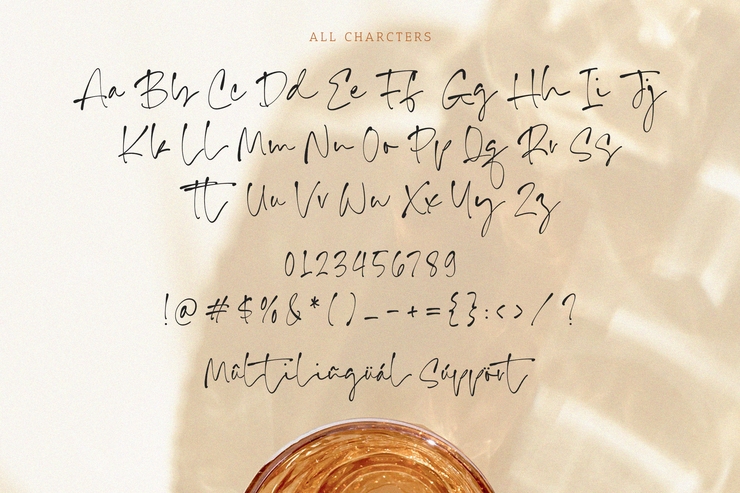 ALL CHARCTERS
Aa Bb Cc Dd Ee Ff Gg Hh Ii Jj
Kk Ll Mm Nn Oo Pp Qq Rr Ss
Tt Uu Vv Ww Xx Yy Zz
0123456789
!@#$%&*()_-+={}:<>/?
Múltilíñgüál Súppört